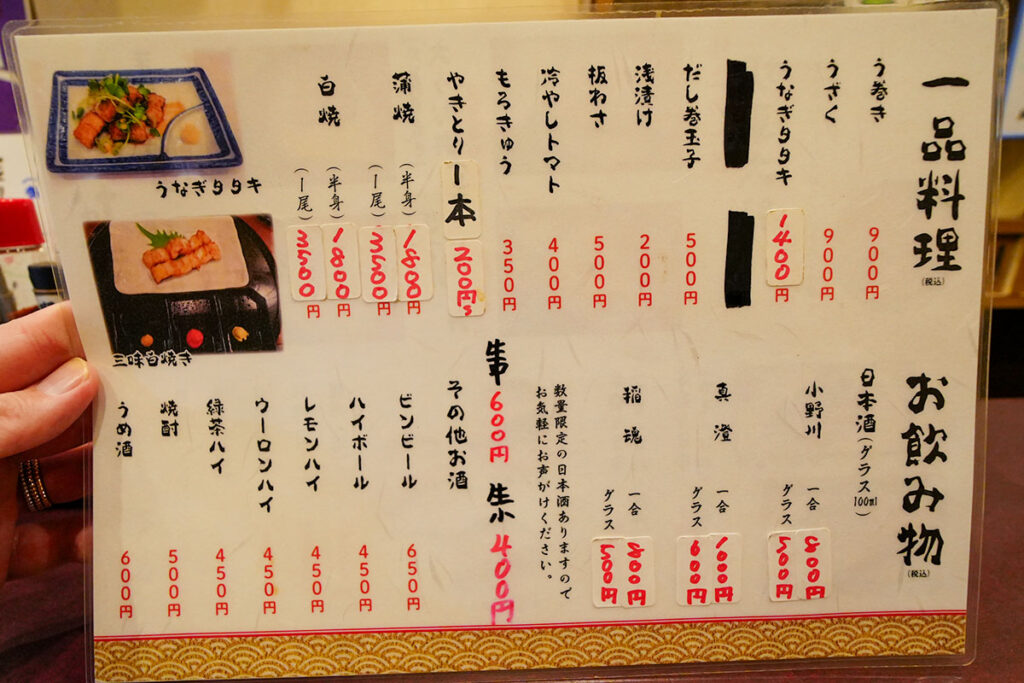 一品料理
(税込)
う巻き 900円
うざく 900円
うなぎタタキ 1400円
だし巻玉子 500円
浅漬け 200円
板わさ 500円
冷やしトマト 400円
もろきゅう 350円
やきとり一本 200円
蒲焼 (半身) 1800円
(一尾) 3500円
白焼 (半身) 1800円
(一尾) 3500円
うなぎタタキ
三味白焼き
お飲み物
(税込)
日本酒(グラス100ml)
小野川 一合 800円
グラス 500円
真澄 一合 1000円
グラス 600円
稲魂 一合 800円
グラス 500円
数量限定の日本酒ありますので
お気軽にお声がけください。
600円 400円
その他お酒
ビンビール 650円
ハイボール 450円
レモンハイ 450円
ウーロンハイ 450円
緑茶ハイ 450円
焼酎 500円
うめ酒 600円